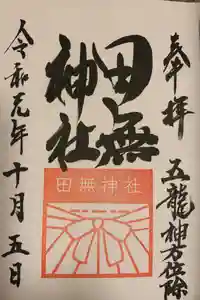 奉拝
五龍神方位除
田無
神社
田無神社
令和元年十月五日